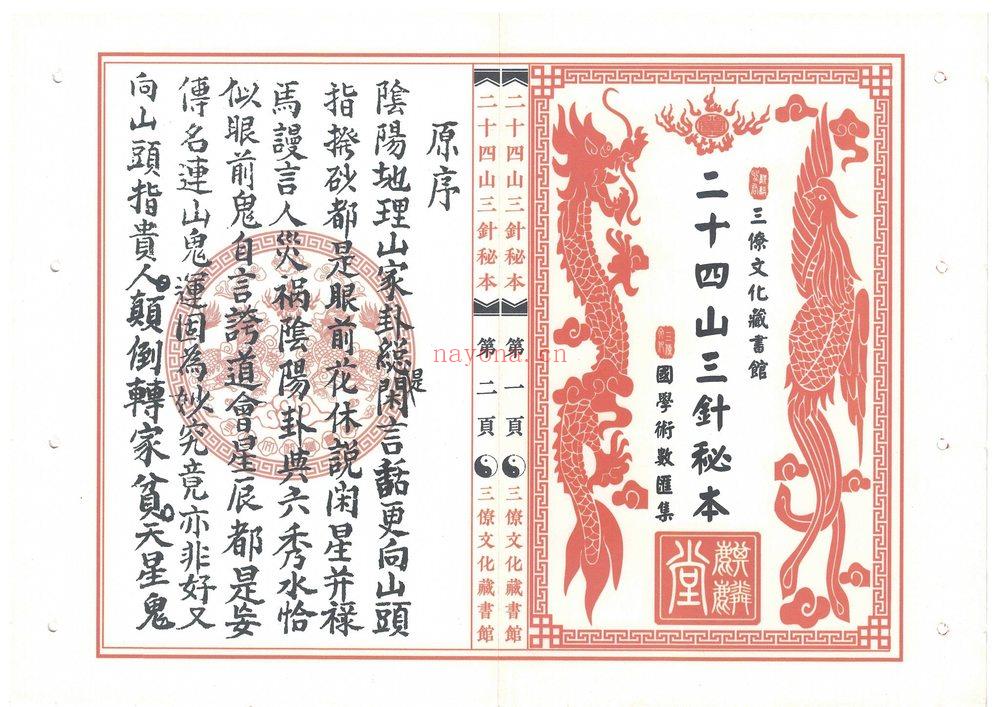 三僚文化藏書館
二十四山三針秘本
國學術數匯集
麒麟堂
二十四山三針秘本 第一頁 三僚文化藏書館
二十四山三針秘本 第二頁 三僚文化藏書館
原序
陰陽地理山家卦總是閑言話更向山頭
指撥砂都是眼前花休說闲星并祿
馬謾言人災禍陰陽卦與六秀水恰
似眼前鬼自言誇道會星辰都是妄
傳名連山鬼運固為妙究竟亦非好又
向山頭指貴人顛倒轉家貧天星鬼
nayona.cn